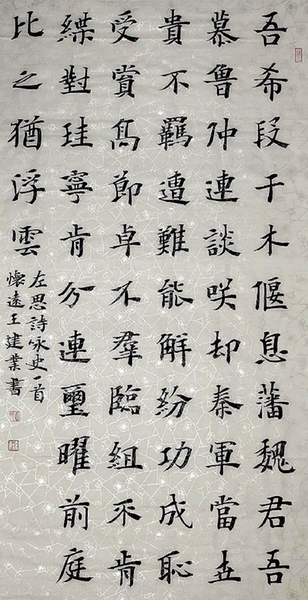 吾希段干木偃息藩魏君吾
慕魯仲連談咲却秦軍當世
貴不羈遭難能解紛功成恥
受賞髙節卓不羣臨組不肯
緤對珪寧肯分連璽曜前庭
比之猶浮雲
左思詩咏史一首
懷遠王建業書